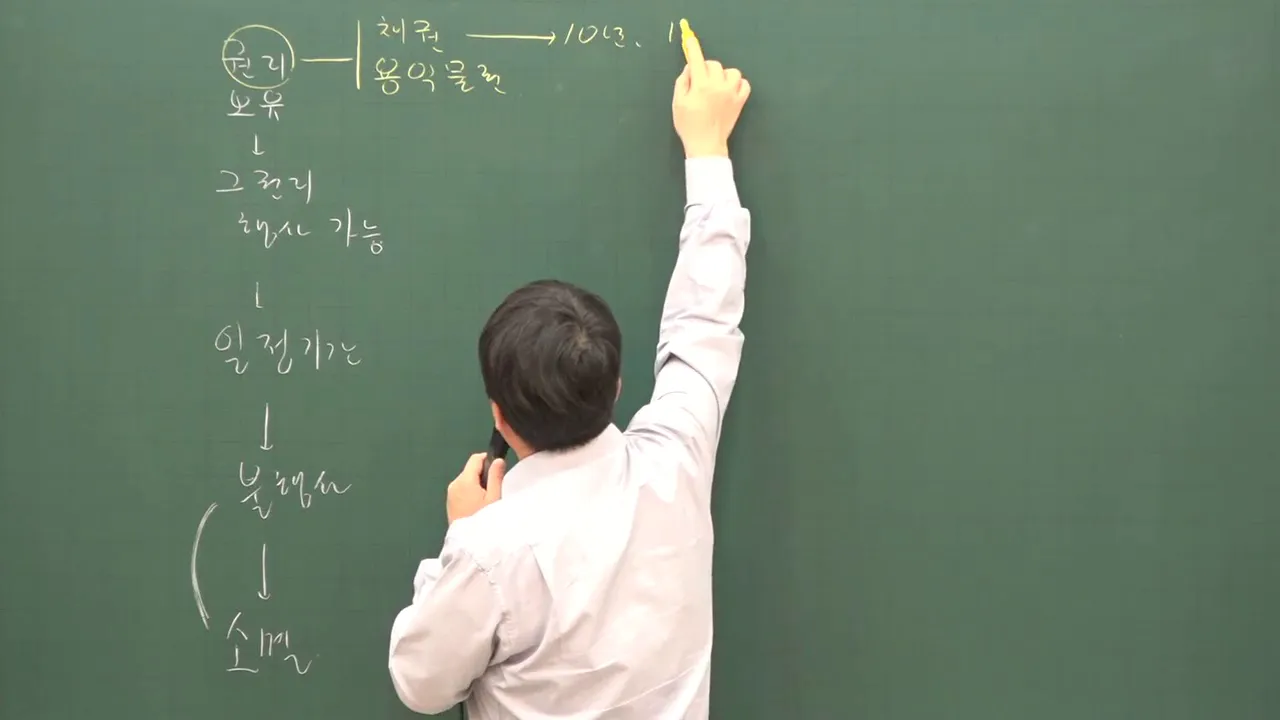 권리
채권 → 10년, 1
용익물권
보유
↓
그 권리
행사 가능
↓
일정기간
↓
불행사
↓
소멸